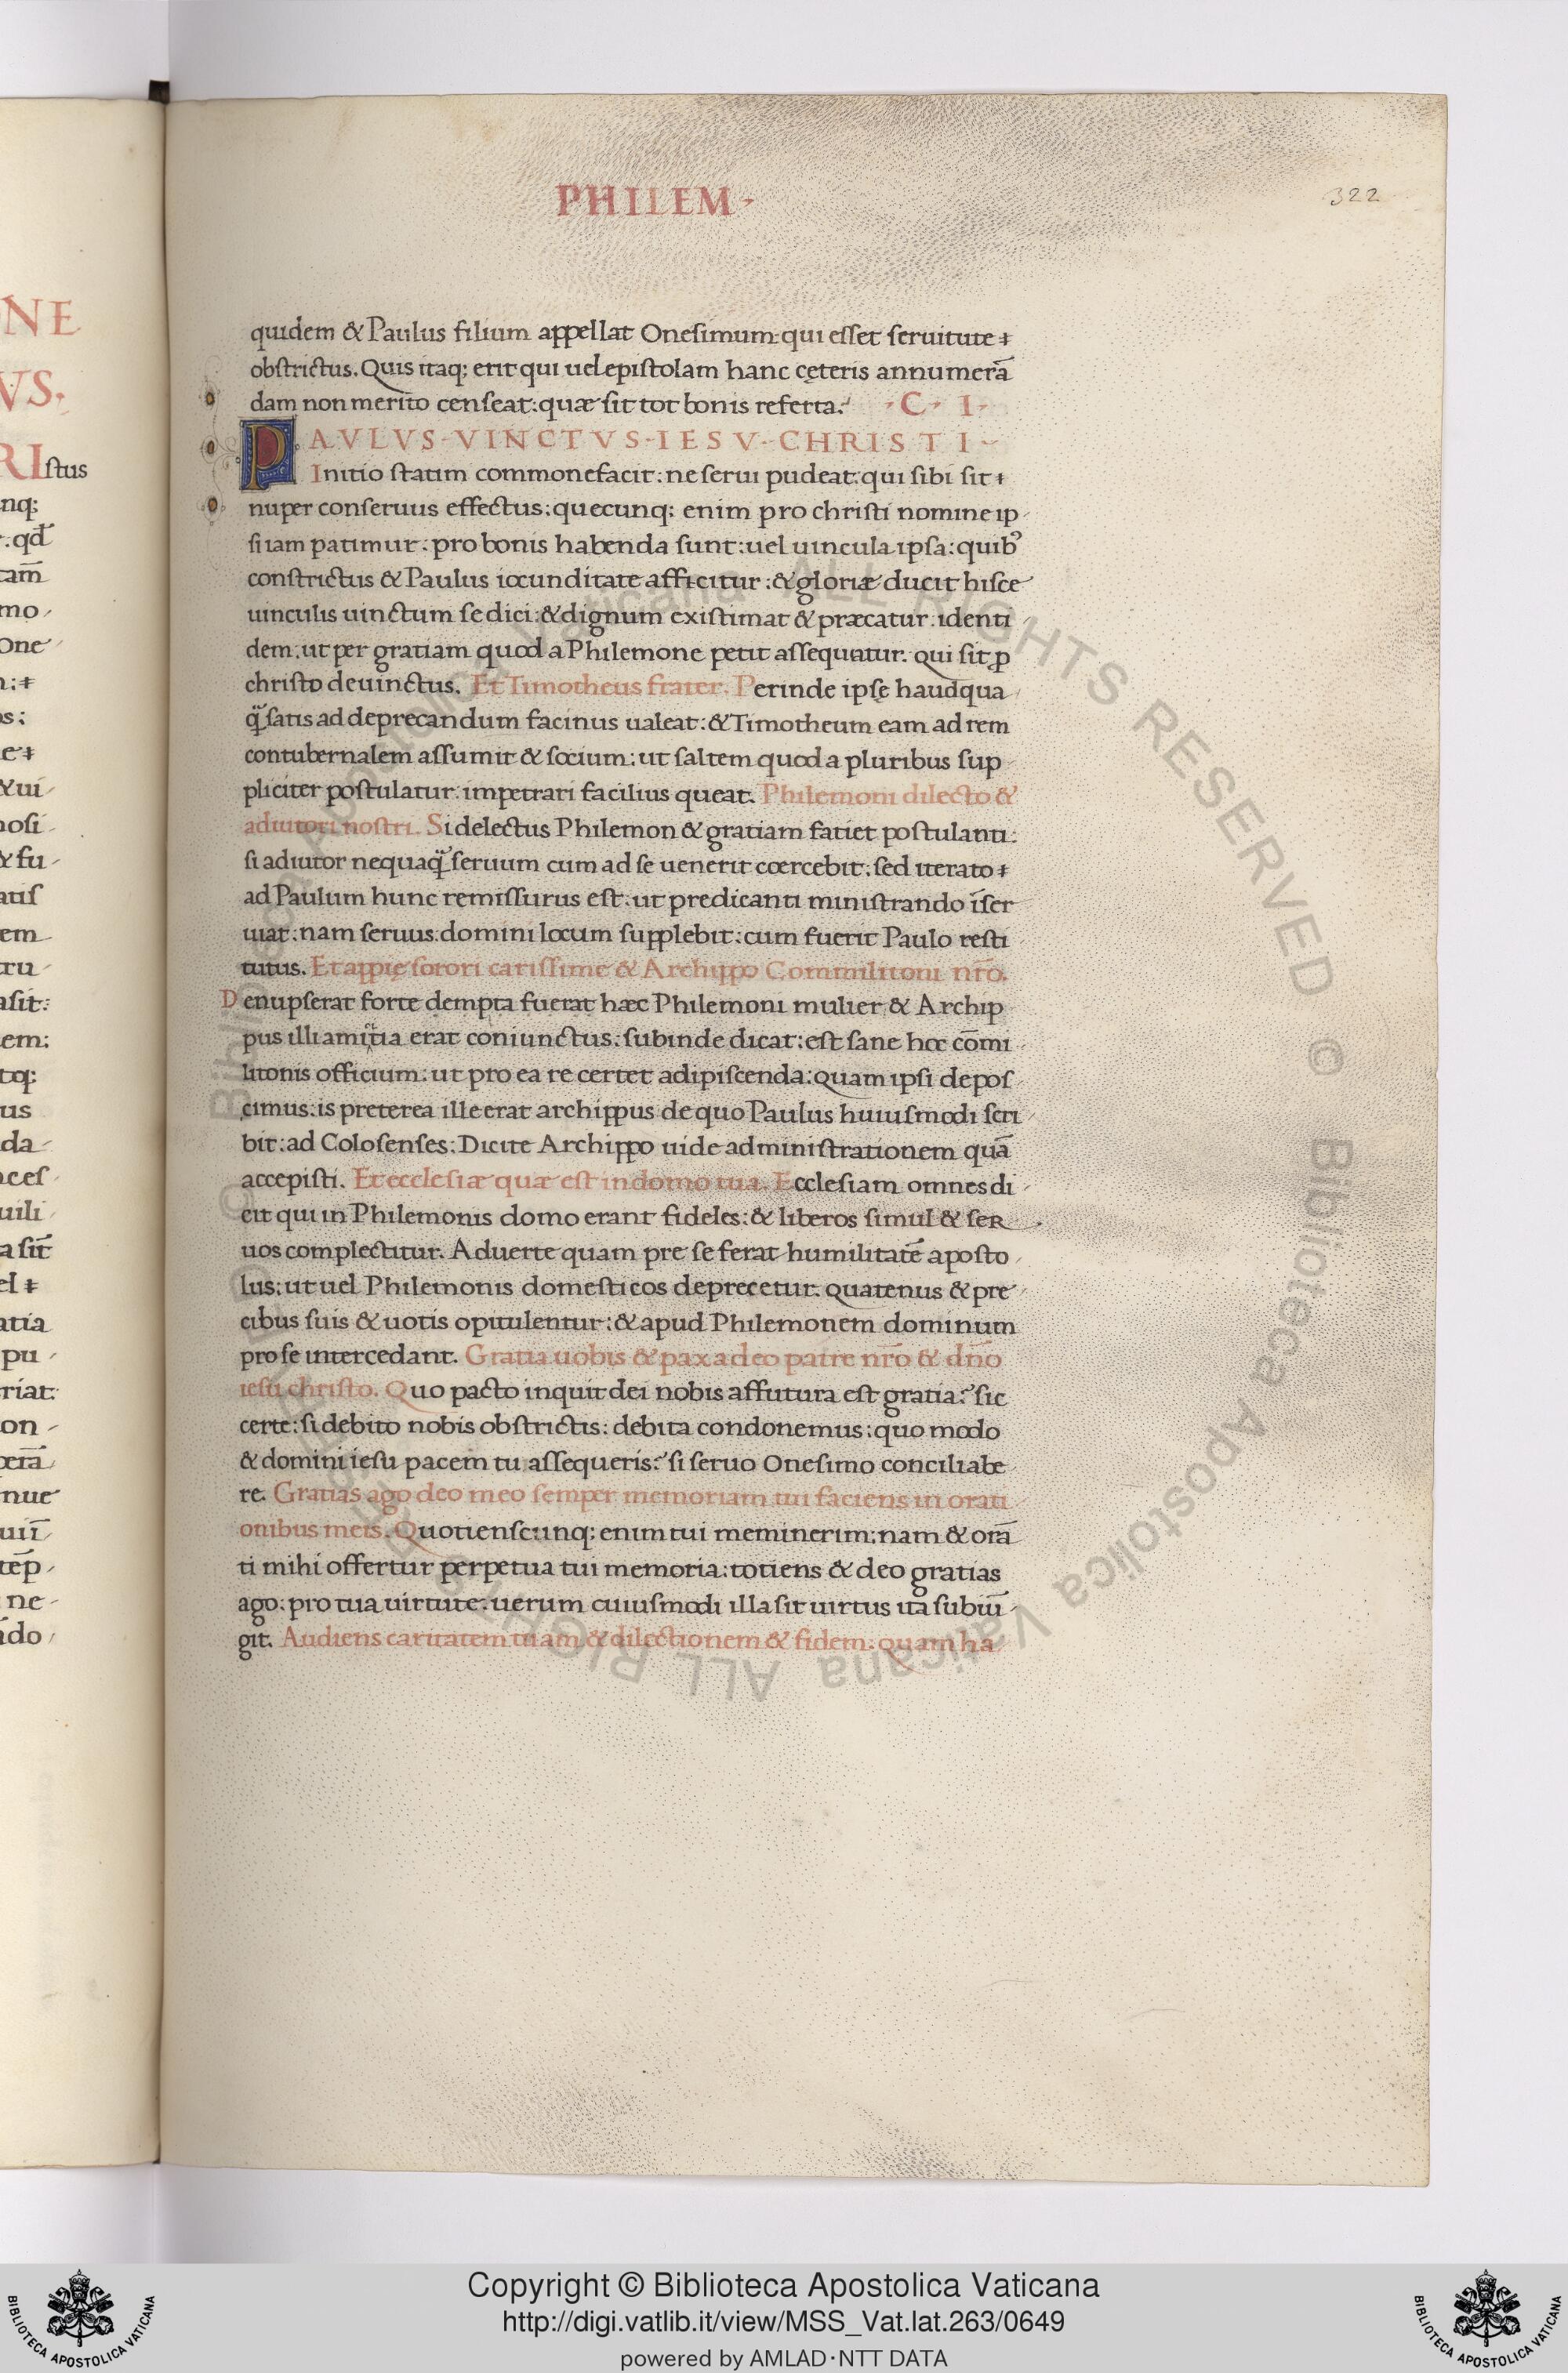 PHILEM·
322
quidem & Paulus filium appellat Onesimum: qui esset seruitute
obstrictus. Quis itaq; erit qui uel epistolam hanc cęteris annumerā
dam non merito censeat: quæ sit tot bonis referta. · C · I ·
PAVLVS · VINCTVS · IESV · CHRISTI
Initio statim commonefacit: ne serui pudeat: qui sibi sit
nuper conseruus effectus: quecunq; enim pro christi nomine ip
si iam patimur: pro bonis habenda sunt: uel uincula ipsa: quib⁹
constrictus & Paulus iocunditate afficitur: & gloriæ ducit hisce
uinculis uinctum se dici: & dignum existimat & præcatur. identi
dem: ut per gratiam quod a Philemone petit assequatur. qui sit ꝓ
christo deuinctus. Et Timotheus frater. Perinde ipsę haudqua
q̈ satis ad deprecandum facinus ualeat: & Timotheum eam ad rem
contubernalem assumit & socium: ut saltem quod a pluribus sup
pliciter postulatur: impetrari facilius queat. Philemoni dilecto &
adiutori nostri. Si delectus Philemon & gratiam fatiet postulanti:
si adiutor nequaq̈ seruum cum ad se uenerit coercebit: sed iterato
ad Paulum hunc remissurus est: ut predicanti ministrando īser
uiat: nam seruus: domini locum supplebit: cum fuerit Paulo resti
tutus. Et appię sorori carissime & Archippo Commilitoni nr̄o.
Denupserat forte dempta fuerat hæc Philemoni mulier & Archip
pus illi amitia erat coniunctus: subinde dicat: est sane hoc cōmi
litonis officium: ut pro ea re certet adipiscenda: quam ipsi depos
cimus: is preterea ille erat archippus de quo Paulus huiusmodi scri
bit: ad Colosenses: Dicite Archippo uide administrationem quā
accepisti. Et ecclesiæ quæ est in domo tua. Ecclesiam omnes di
cit qui in Philemonis domo erant fideles: & liberos simul & ser
uos complectitur. Aduerte quam pre se ferat humilitatē aposto
lus: ut uel Philemonis domesticos deprecetur. quatenus & pre
cibus suis & uotis opitulentur: & apud Philemonem dominum
pro se intercedant. Gratia uobis & pax a deo patre nr̄o & dn̄o
iesu christo. Quo pacto inquit dei nobis affutura est gratia? sic
certe: si debito nobis obstrictis: debita condonemus: quo modo
& domini iesu pacem tu assequeris? si seruo Onesimo conciliabe
re. Gratias ago deo meo semper memoriam tui faciens in orati
onibus meis. Quotienscunq; enim tui meminerim: nam & orā
ti mihi offertur perpetua tui memoria: totiens & deo gratias
ago: pro tua uirtute: uerum cuiusmodi illa sit uirtus ita subiū
git. Audiens caritatem tuam & dilectionem & fidem: quam ha
Copyright © Biblioteca Apostolica Vaticana
http://digi.vatlib.it/view/MSS_Vat.lat.263/0649
powered by AMLAD·NTT DATA